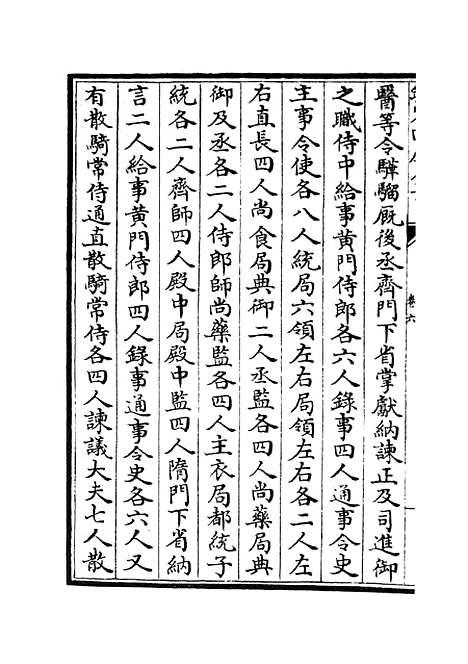 醫等令驊騮厩後丞齊門下省掌獻納諫正及司進御
之職侍中給事黄門侍郎各六人錄事四人通事令史
主事令使各八人統局六領左右局領左右各二人左
右直長四人尚食局典御二人丞監各四人尚藥局典
御及丞各二人侍郎師尚藥監各四人主衣局都統子
統各二人齊師四人殿中局殿中監四人隋門下省納
言二人給事黄門侍郎四人錄事通事令史各六人又
有散騎常侍通直散騎常侍各四人諫議大夫七人散
卷六